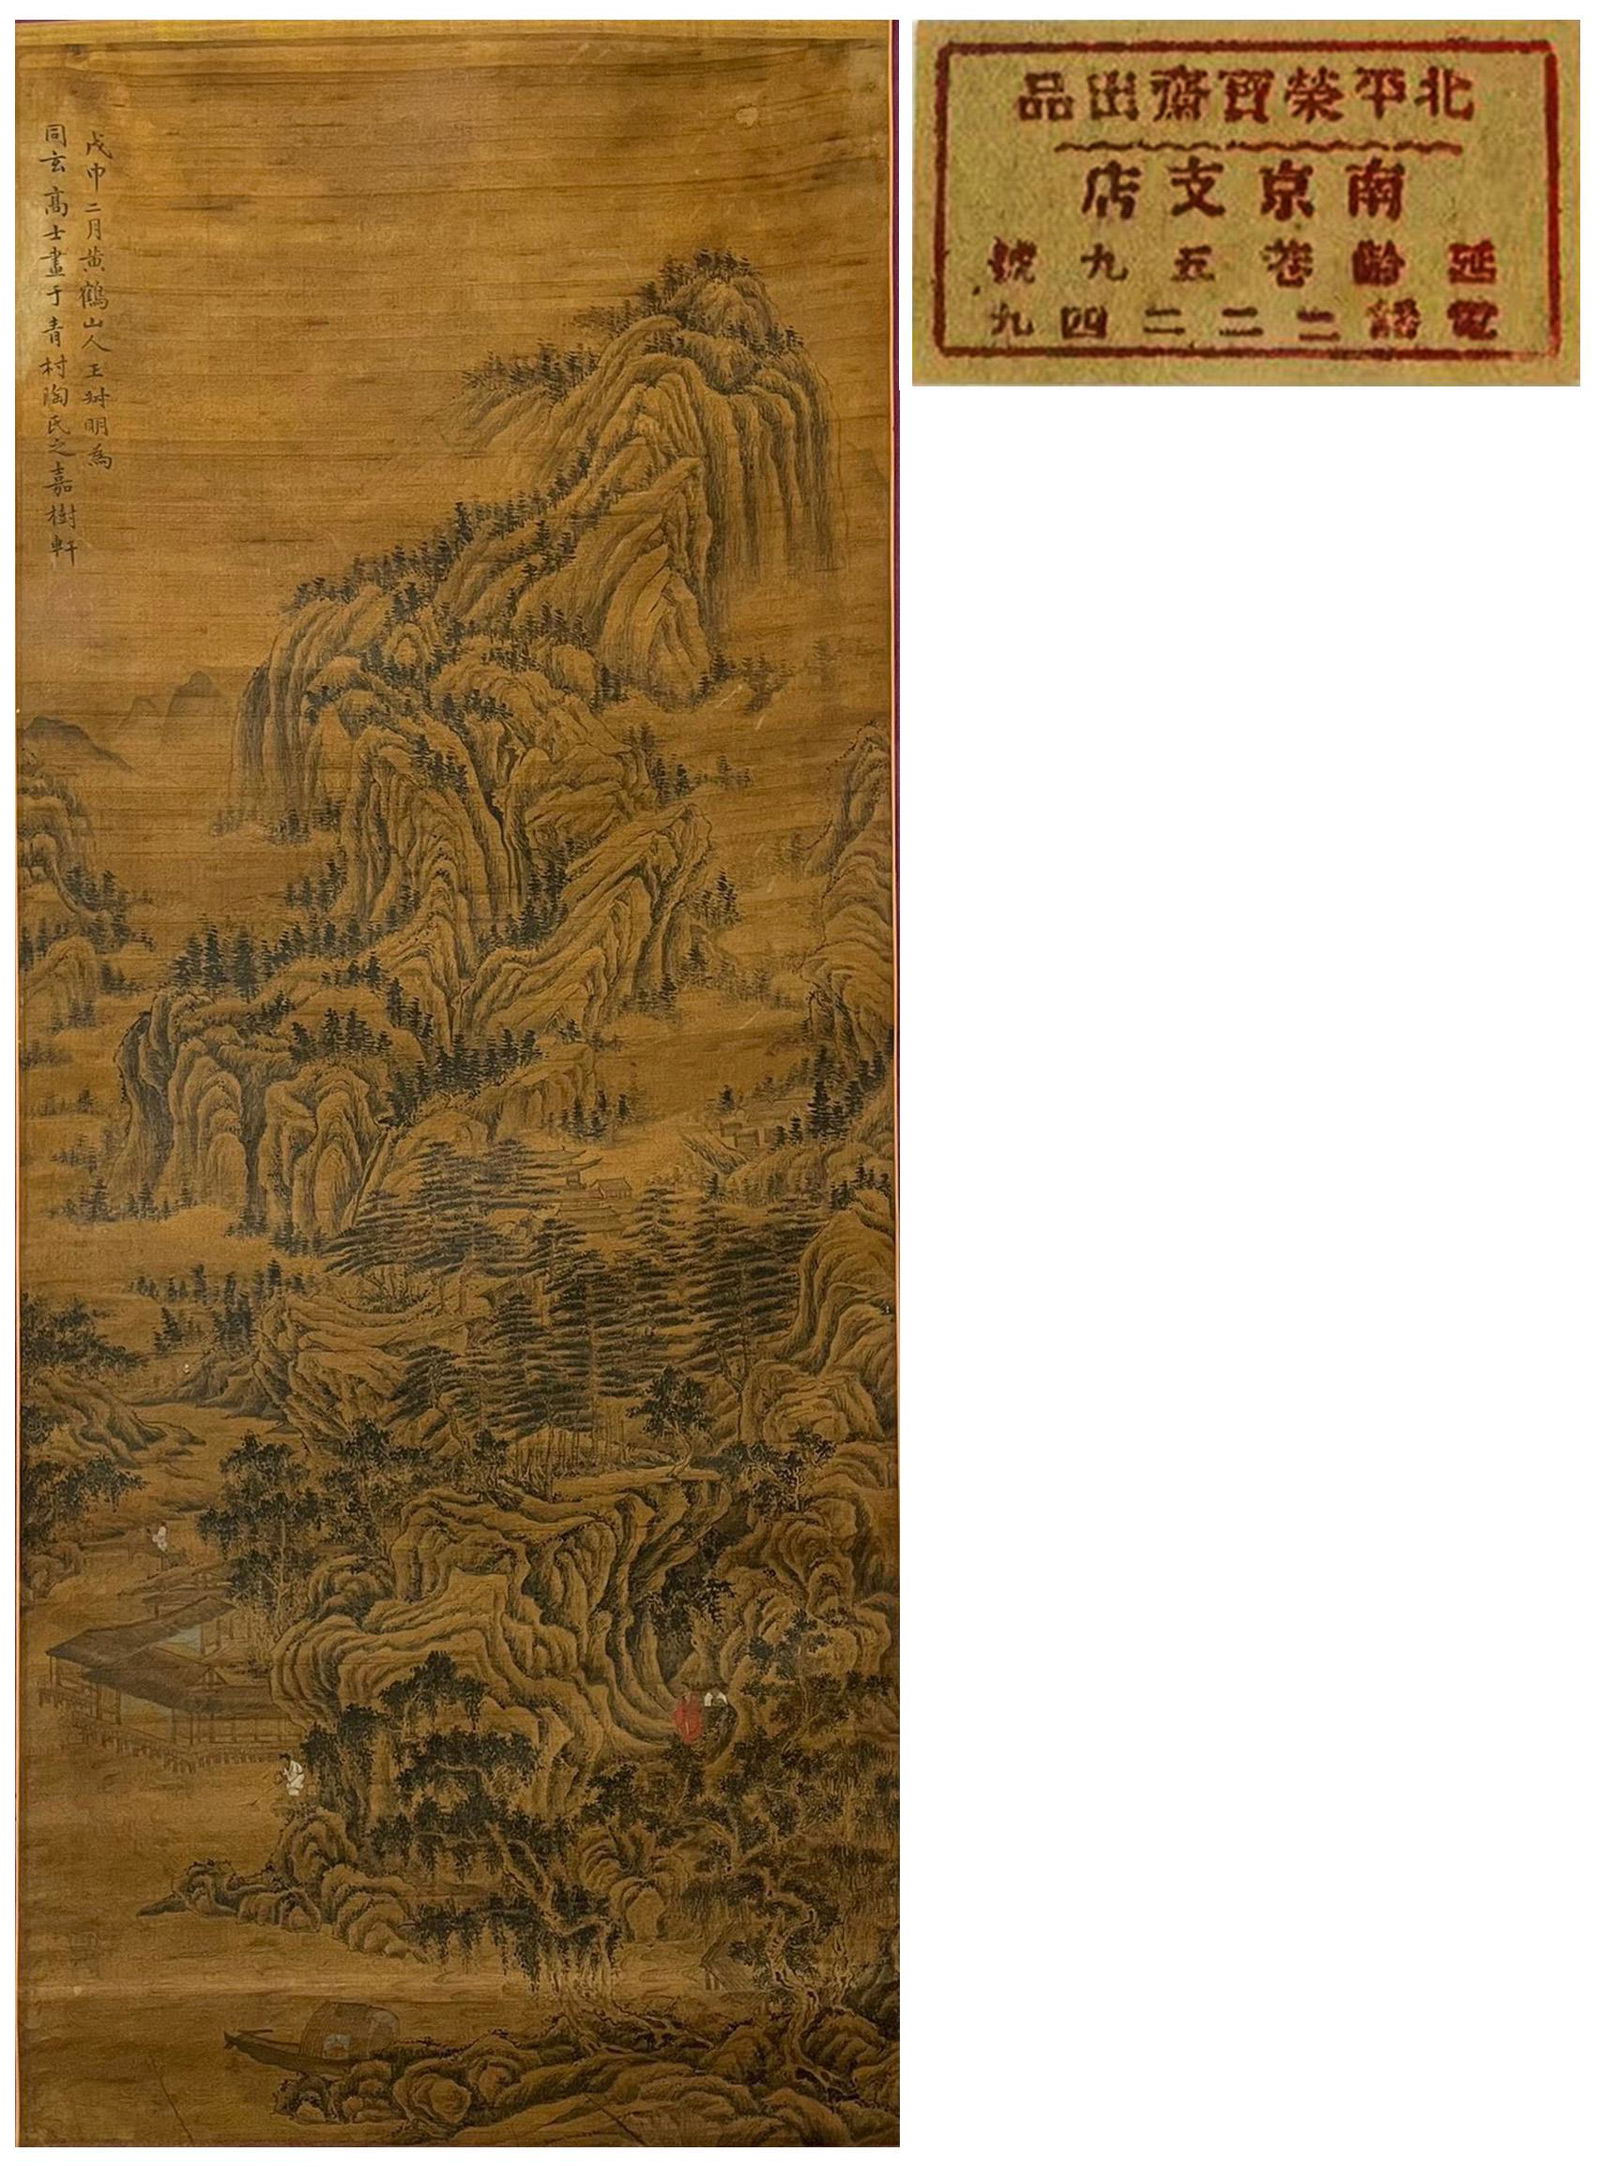 戊申二月黄鶴山人王叔明為
同玄高士畫于青村陶氏之嘉樹軒
北平榮寶齋出品
南京支店
延齡巷五九號
電話二二二四九